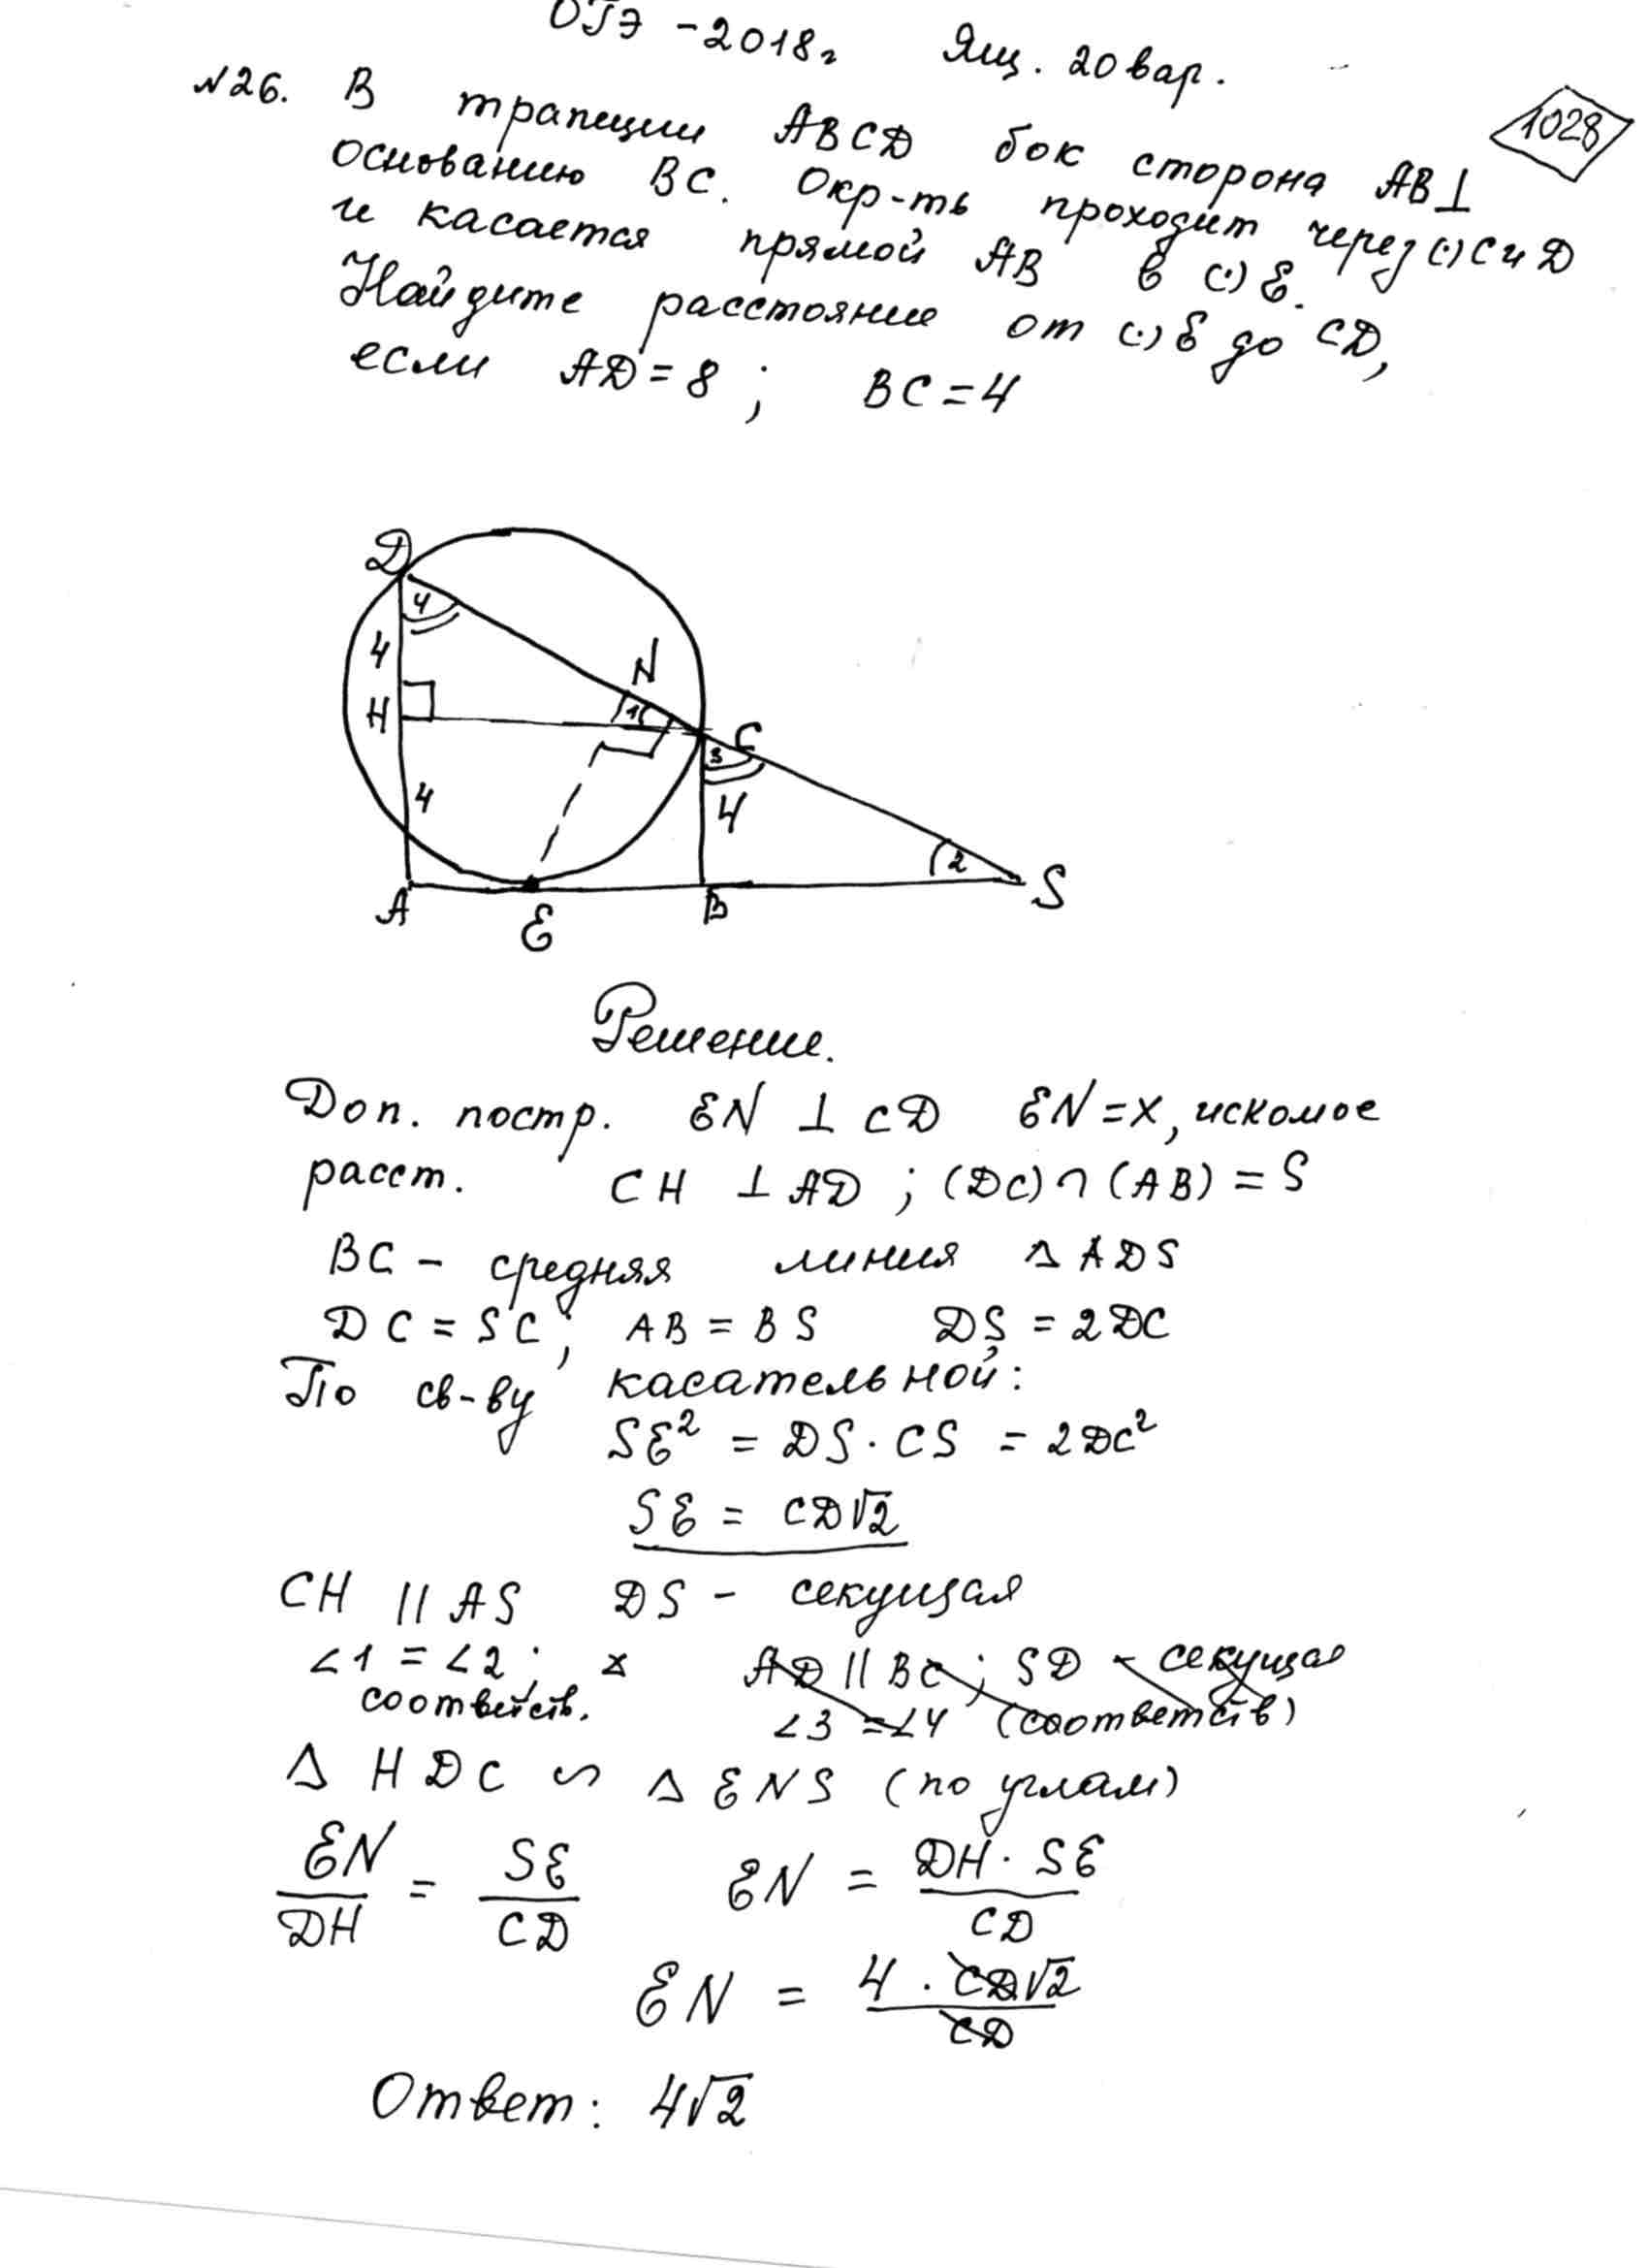 ОГЭ -2018г Ящ. 20 вар.
1028
№26. В трапеции ABCD бок сторона AB⊥
основанию BC. Окр-ть проходит через (·) C и D
и касается прямой AB в (·) E.
Найдите расстояние от (·) E до CD,
если AD = 8 ; BC = 4
D
4
4
N
H
1
C
3
4
4
2
S
A
B
E
Решение.
Доп. постр. EN ⊥ CD EN = x, искомое
расст. CH ⊥ AD ; (DC) ∩ (AB) = S
BC - средняя линия △ ADS
DC = SC ; AB = BS DS = 2DC
По св-ву касательной:
SE² = DS · CS = 2DC²
SE = CD√2
CH || AS DS - секущая
∠1 = ∠2 ; AD || BC ; SD - секущая
соответств. ∠3 = ∠4 (соответств)
△ HDC ∽ △ ENS (по углам)
EN/DH = SE/CD EN = DH · SE/CD
EN = 4 · CD√2/CD
Ответ: 4√2